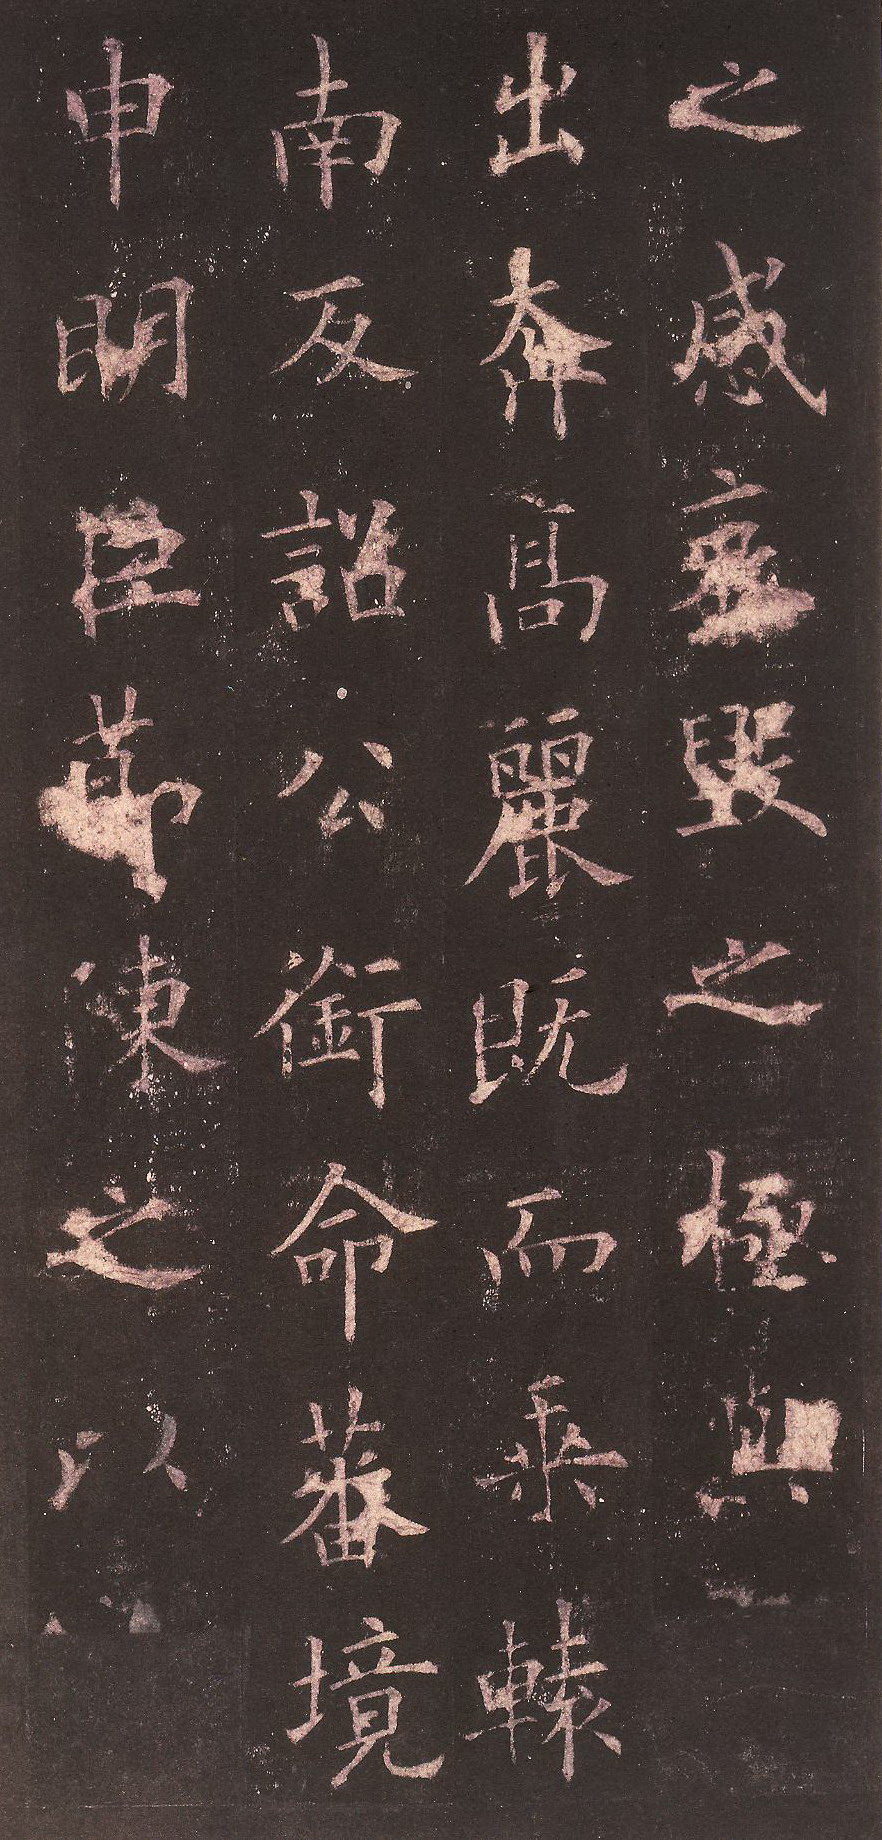 之感哀毀之極與
出奔高麗既而乘轅
南反詔公銜命蕃境
申明臣節陳之以